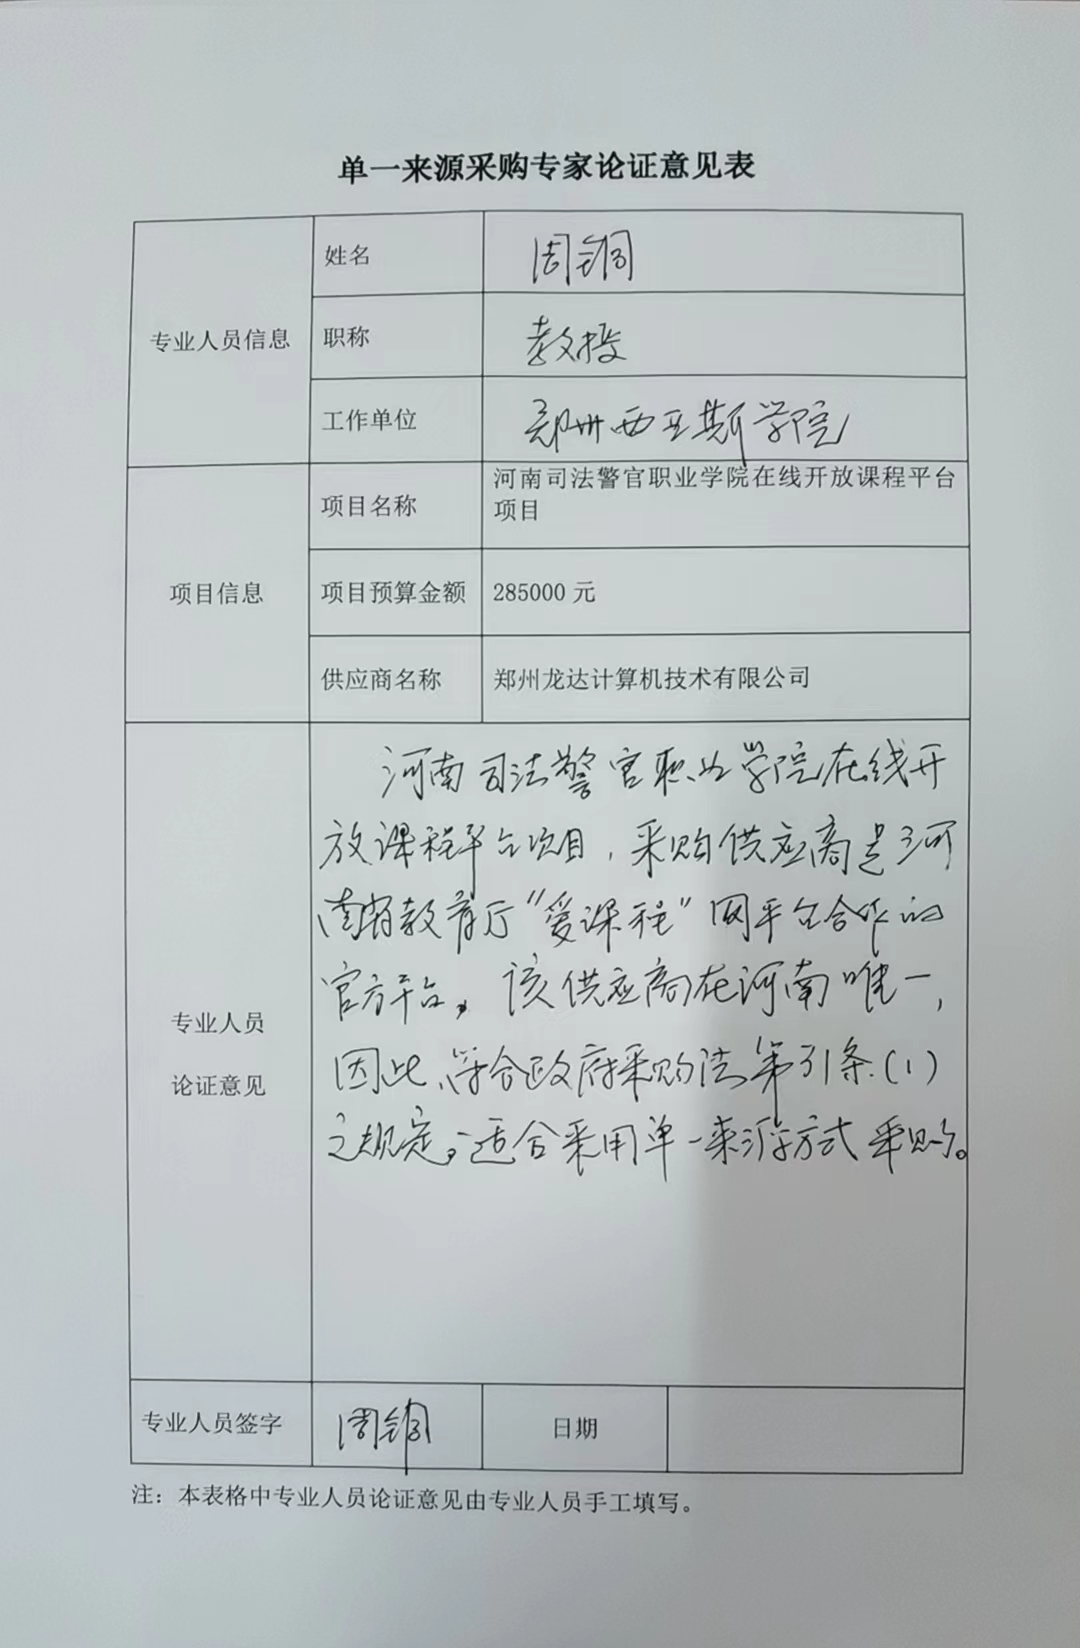 单一来源采购专家论证意见表
专业人员信息
姓名
周铜
职称
教授
工作单位
郑州西亚斯学院
项目信息
项目名称
河南司法警官职业学院在线开放课程平台
项目
项目预算金额
285000 元
供应商名称
郑州龙达计算机技术有限公司
专业人员
论证意见
河南司法警官职业学院在线开
放课程平台项目，采购供应商是河
南省教育厅“爱课程”网平台合作的
官方平台。该供应商在河南唯一，
因此、符合政府采购法第31条(1)
之规定。适合采用单一来源方式采购。
专业人员签字
周铜
日期
注：本表格中专业人员论证意见由专业人员手工填写。